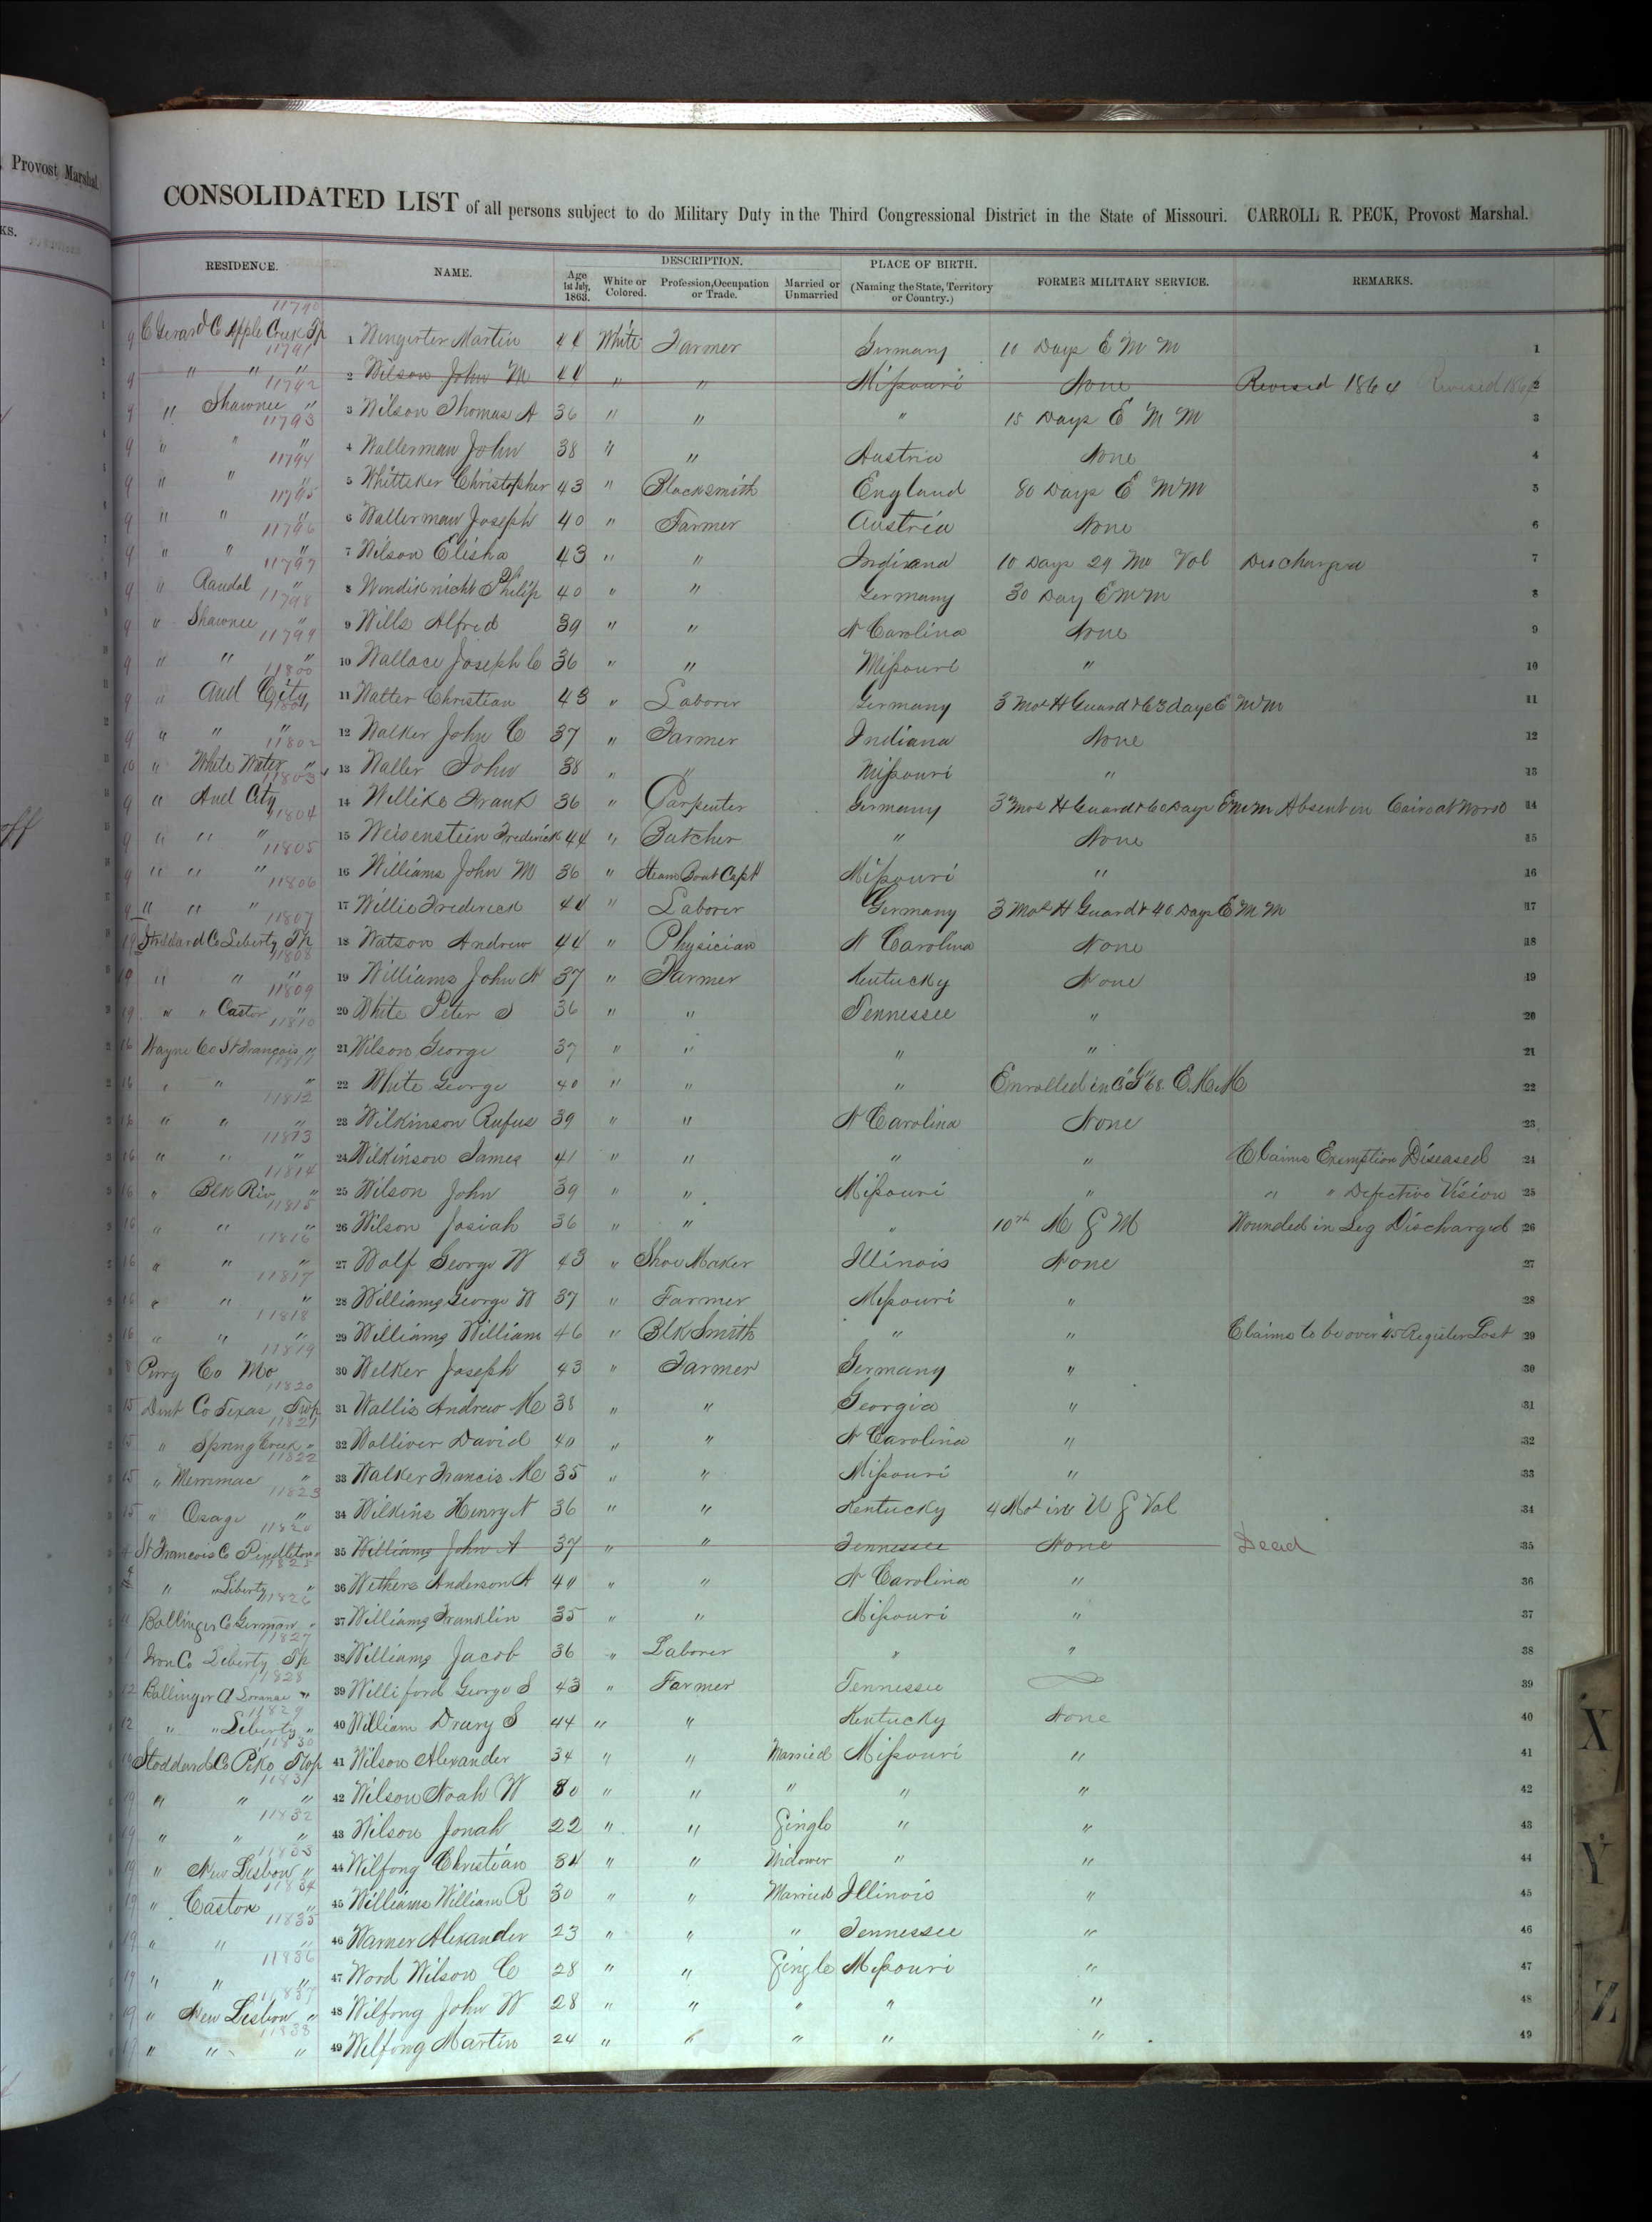 Provost Marshal.
KS.
off
CONSOLIDATED LIST of all persons subject to do Military Duty in the Third Congressional District in the State of Missouri. CARROLL R. PECK, Provost Marshal.
RESIDENCE. NAME. DESCRIPTION. PLACE OF BIRTH. FORMER MILITARY SERVICE. REMARKS.
Age 1st July, 1863. White or Colored. Profession, Occupation or Trade. Married or Unmarried (Naming the State, Territory or Country.)
11790
9 C Girard Co Apple Creek Tp 1 Martin 44 White Farmer Germany 10 Days E M M 1
11791
9 " " " 2 Wilson John M 44 " " Missouri None Revised 1864 Revised 1864 2
11792
9 " Shawnee " 3 Wilson Thomas A 36 " " " 15 Days E M M 3
11793
9 " " " 4 Wallerman John 38 " " Austria None 4
11794
9 " " " 5 Whitteker Christopher 43 " Blacksmith England 80 Days E M M 5
11795
9 " " " 6 Wallerman Joseph 40 " Farmer Austria None 6
11796
9 " " " 7 Wilson Elisha 43 " " Indiana 10 Days 29 Mo Vol Discharged 7
11797
9 " Randal " 8 Philip 40 " " Germany 30 Day E M M 8
11798
9 " Shawnee " 9 Wills Alfred 39 " " N Carolina None 9
11799
9 " " " 10 Wallace Joseph C 36 " " Missouri " 10
11800
9 " and City 11 Walter Christian 43 " Laborer Germany 3 Mos H Guard & 63 days E M M 11
11801
9 " " " 12 Walker John C 37 " Farmer Indiana None 12
11802
10 " White Water " 13 Waller John 38 " " Missouri " 13
11803
9 " and City 14 Willike Frank 36 " Carpenter Germany 3 Mos H Guard & 60 Days E M M Absent in Cairo at Work 14
11804
9 " " " 15 Weisenstein Frederick 44 " Butcher " None 15
11805
9 " " " 16 Williams John M 36 " Steam Boat Capt Missouri " 16
11806
9 " " " 17 Willie Frederick 44 " Laborer Germany 3 Mos H Guard & 40 Days E M M 17
11807
19 Stoddard Co Liberty Tp 18 Watson Andrew 44 " Physician N Carolina None 18
11808
19 " " " 19 Williams John N 37 " Farmer Kentucky None 19
11809
19 " " Castor " 20 White Peter S 36 " " Tennessee " 20
11810
16 Wayne Co St Francois " 21 Wilson George 37 " " " " 21
11811
16 " " " 22 White George 40 " " " Enrolled in Co "G" 68 E. M. M 22
11812
16 " " " 23 Wilkinson Rufus 39 " " N Carolina None 23
11813
16 " " " 24 Wilkinson James 41 " " " " Claims Exemption Diseased 24
11814
16 " Blk Riv " 25 Wilson John 39 " " Missouri " " " Defective Vision 25
11815
16 " " " 26 Wilson Josiah 36 " " " 10th M S M Wounded in Leg Discharged 26
11816
16 " " " 27 Wolf George W 43 " Shoe Maker Illinois None 27
11817
16 " " " 28 Williams George W 37 " Farmer Missouri " 28
11818
16 " " " 29 Williams William 46 " Blk Smith " " Claims to be over 45 Register Lost 29
11819
8 Perry Co Mo 30 Welker Joseph 43 " Farmer Germany " 30
11820
15 Dent Co Texas Twp 31 Wallis Andrew Mc 38 " " Georgia " 31
11821
15 " Spring Creek " 32 Walliver David 40 " " N Carolina " 32
11822
15 " Merrimac " 33 Walker Francis Mc 35 " " Missouri " 33
11823
15 " Osage " 34 Wilkins Henry N 36 " " Kentucky 4 Mos in U S Vol 34
11824
4 St Francois Co Pendleton " 35 Williams John A 37 " " Tennessee None Dead 35
11825
4 " " Liberty " 36 Withers Anderson A 40 " " N Carolina " 36
11826
11 Bollinger Co German " 37 Williams Franklin 35 " " Missouri " 37
11827
1 Iron Co Liberty Tp 38 Williams Jacob 36 " Laborer " " 38
11828
12 Bollinger Co Lorance " 39 Williford George S 43 " Farmer Tennessee 39
11829
12 " " Liberty " 40 William Drury S 44 " " Kentucky None 40
11830
19 Stoddard Co Pike Twp 41 Wilson Alexander 34 " " Married Missouri " 41
11831
19 " " " 42 Wilson Noah W 30 " " " " " 42
11832
19 " " " 43 Wilson Jonah 22 " " Single " " 43
11833
19 " New Lisbon " 44 Wilfong Christian 34 " " Widower " " 44
11834
19 " Castor " 45 Williams William R 30 " " Married Illinois " 45
11835
19 " " " 46 Warner Alexander 23 " " " Tennessee " 46
11836
19 " " " 47 Word Wilson C 28 " " Single Missouri " 47
11837
19 " New Lisbon " 48 Wilfong John W 28 " " " " " 48
11838
19 " " " 49 Wilfong Martin 24 " " " " " 49
X
Y
Z